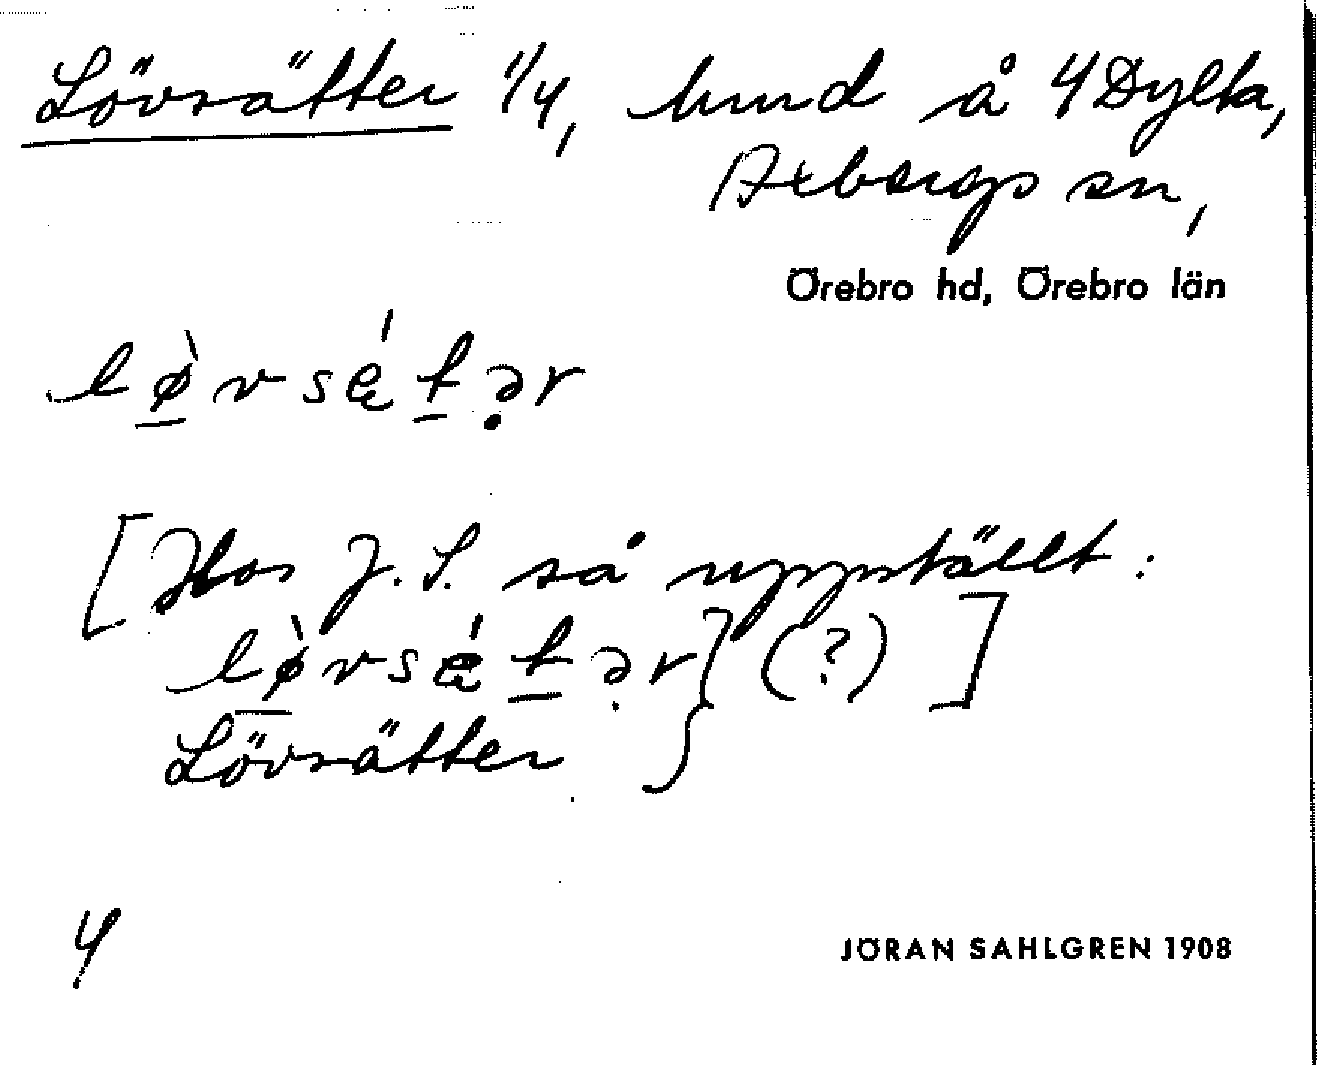 Lövsätter 1/4, lund å 4 Dylta,
Axbergs sn,
Örebro hd, Örebro län
lø̀vsǽtər
[Hos J. S. så uppställt:
lø̀vsǽtər} (?) ]
Lövsätter
4
JÖRAN SAHLGREN 1908